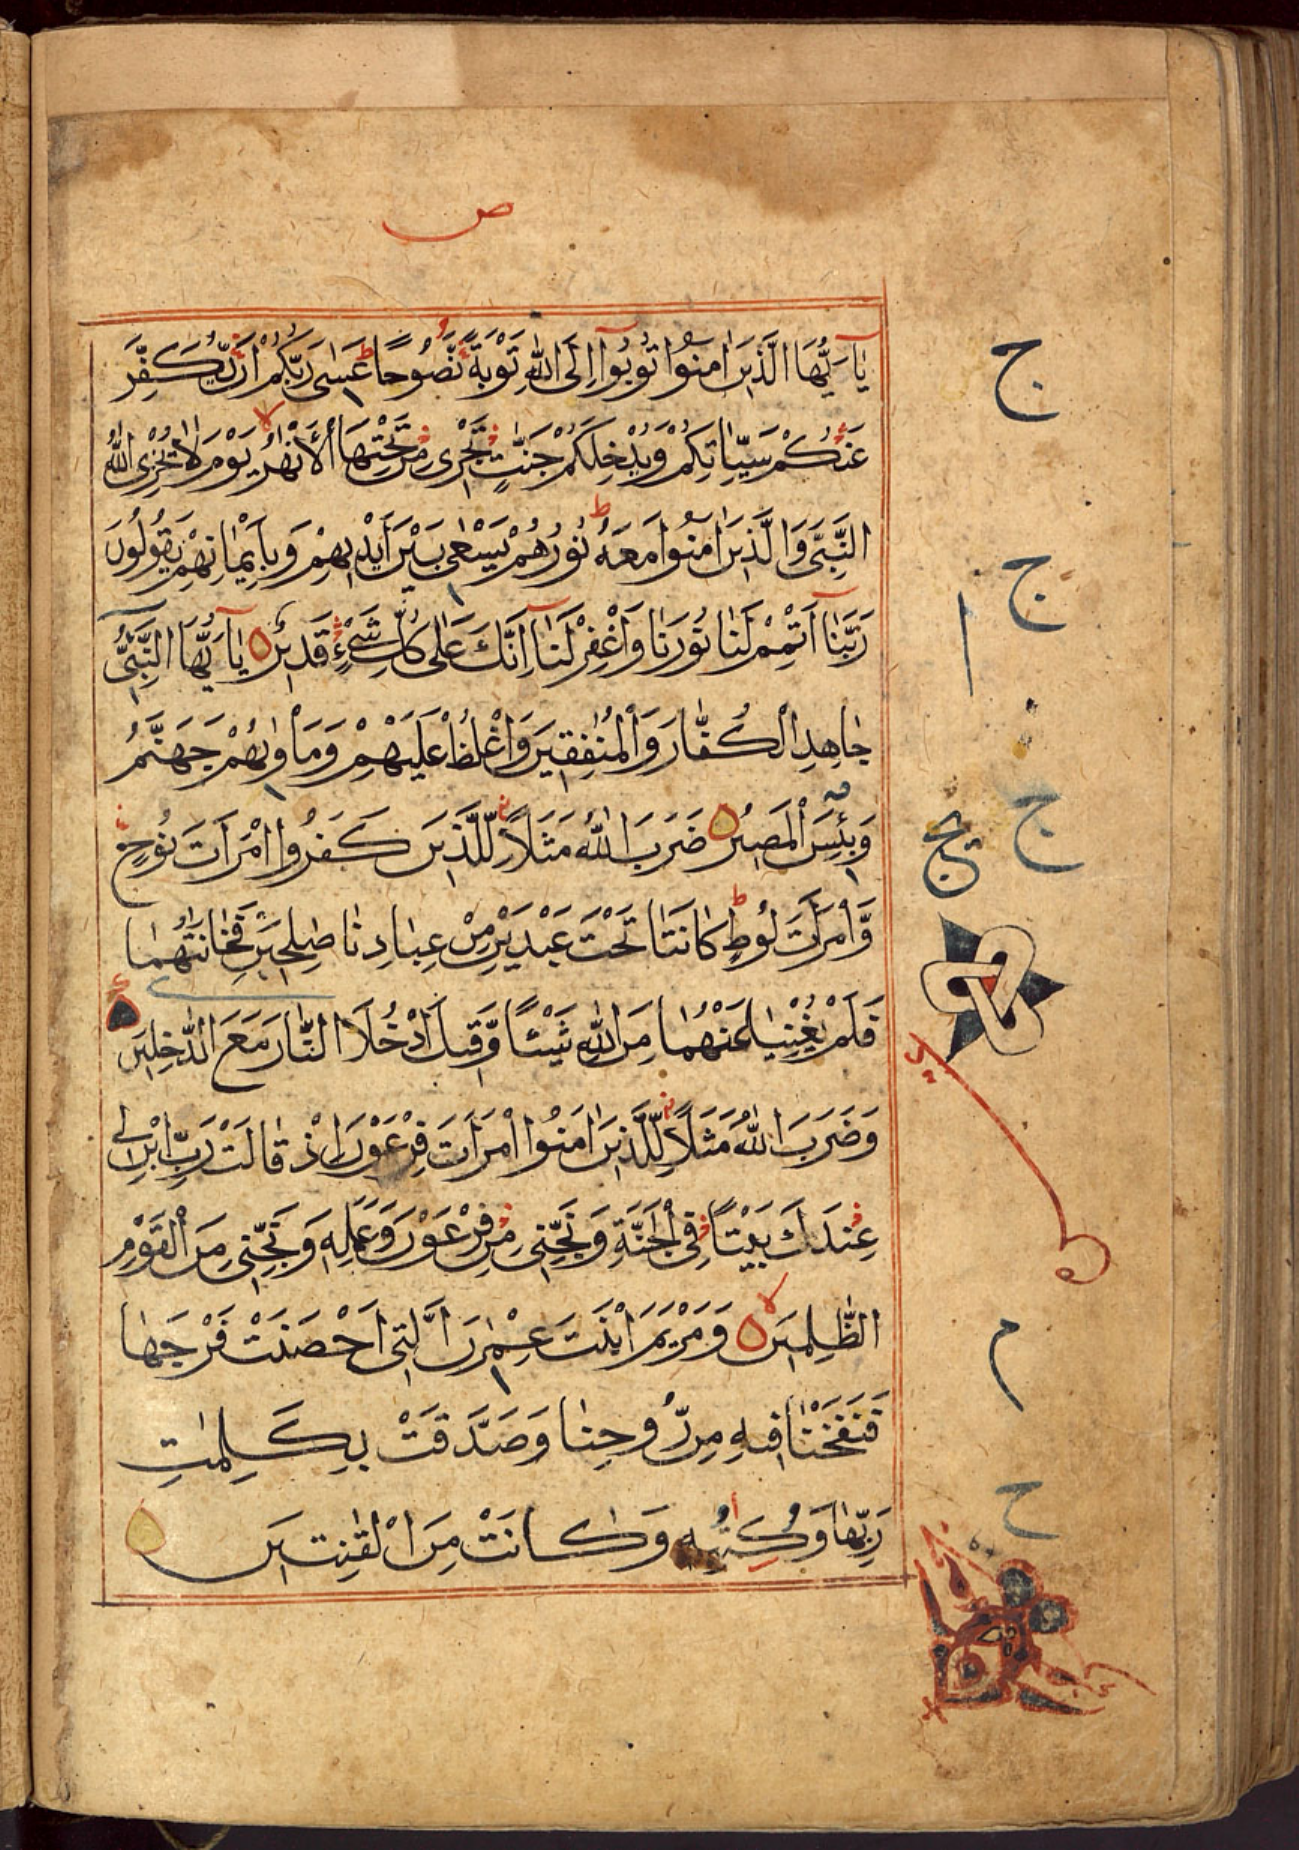 ص
يٰاَيُّهَا الَّذِيْنَ اٰمَنُوْا تُوْبُوْا اِلَى اللّٰهِ تَوْبَةً نَّصُوْحًا عَسٰى رَبُّكُمْ اَنْ يُّكَفِّرَ
عَنْكُمْ سَيِّاٰتِكُمْ وَيُدْخِلَكُمْ جَنّٰتٍ تَجْرِى مِنْ تَحْتِهَا الْاَنْهٰرُ يَوْمَ لَا يُخْزِى اللّٰهُ
النَّبِىَّ وَالَّذِيْنَ اٰمَنُوْا مَعَهُ نُوْرُهُمْ يَسْعٰى بَيْنَ اَيْدِيْهِمْ وَبِاَيْمٰانِهِمْ يَقُوْلُوْنَ
رَبَّنَا اَتْمِمْ لَنٰا نُوْرَنٰا وَاغْفِرْ لَنٰا اِنَّكَ عَلٰى كُلِّ شَىْءٍ قَدِيْرٌ يٰااَيُّهَا النَّبِىُّ
جٰاهِدِ الْكُفّٰارَ وَالْمُنٰفِقِيْنَ وَاغْلُظْ عَلَيْهِمْ وَمَاْوٰىهُمْ جَهَنَّمُ
وَبِئْسَ الْمَصِيْرُ ضَرَبَ اللّٰهُ مَثَلًا لِّلَّذِيْنَ كَفَرُوا امْرَاَتَ نُوْحٍ
وَّامْرَاَتَ لُوْطٍ كٰانَتٰا تَحْتَ عَبْدَيْنِ مِنْ عِبٰادِنٰا صٰلِحَيْنِ فَخٰانَتٰهُمٰا
فَلَمْ يُغْنِيٰا عَنْهُمٰا مِنَ اللّٰهِ شَيْئًا وَّقِيْلَ ادْخُلَا النّٰارَ مَعَ الدّٰخِلِيْنَ
وَضَرَبَ اللّٰهُ مَثَلًا لِّلَّذِيْنَ اٰمَنُوا امْرَاَتَ فِرْعَوْنَ اِذْ قٰالَتْ رَبِّ ابْنِ لِى
عِنْدَكَ بَيْتًا فِى الْجَنَّةِ وَنَجِّنِى مِنْ فِرْعَوْنَ وَعَمَلِهِ وَنَجِّنِى مِنَ الْقَوْمِ
الظّٰلِمِيْنَ وَمَرْيَمَ ابْنَتَ عِمْرٰنَ الَّتِى اَحْصَنَتْ فَرْجَهٰا
فَنَفَخْنٰا فِيْهِ مِنْ رُّوْحِنٰا وَصَدَّقَتْ بِكَلِمٰتِ
رَبِّهٰا وَكُتُبِهِ وَكٰانَتْ مِنَ الْقٰنِتِيْنَ
ج
ج
ج
م
ح